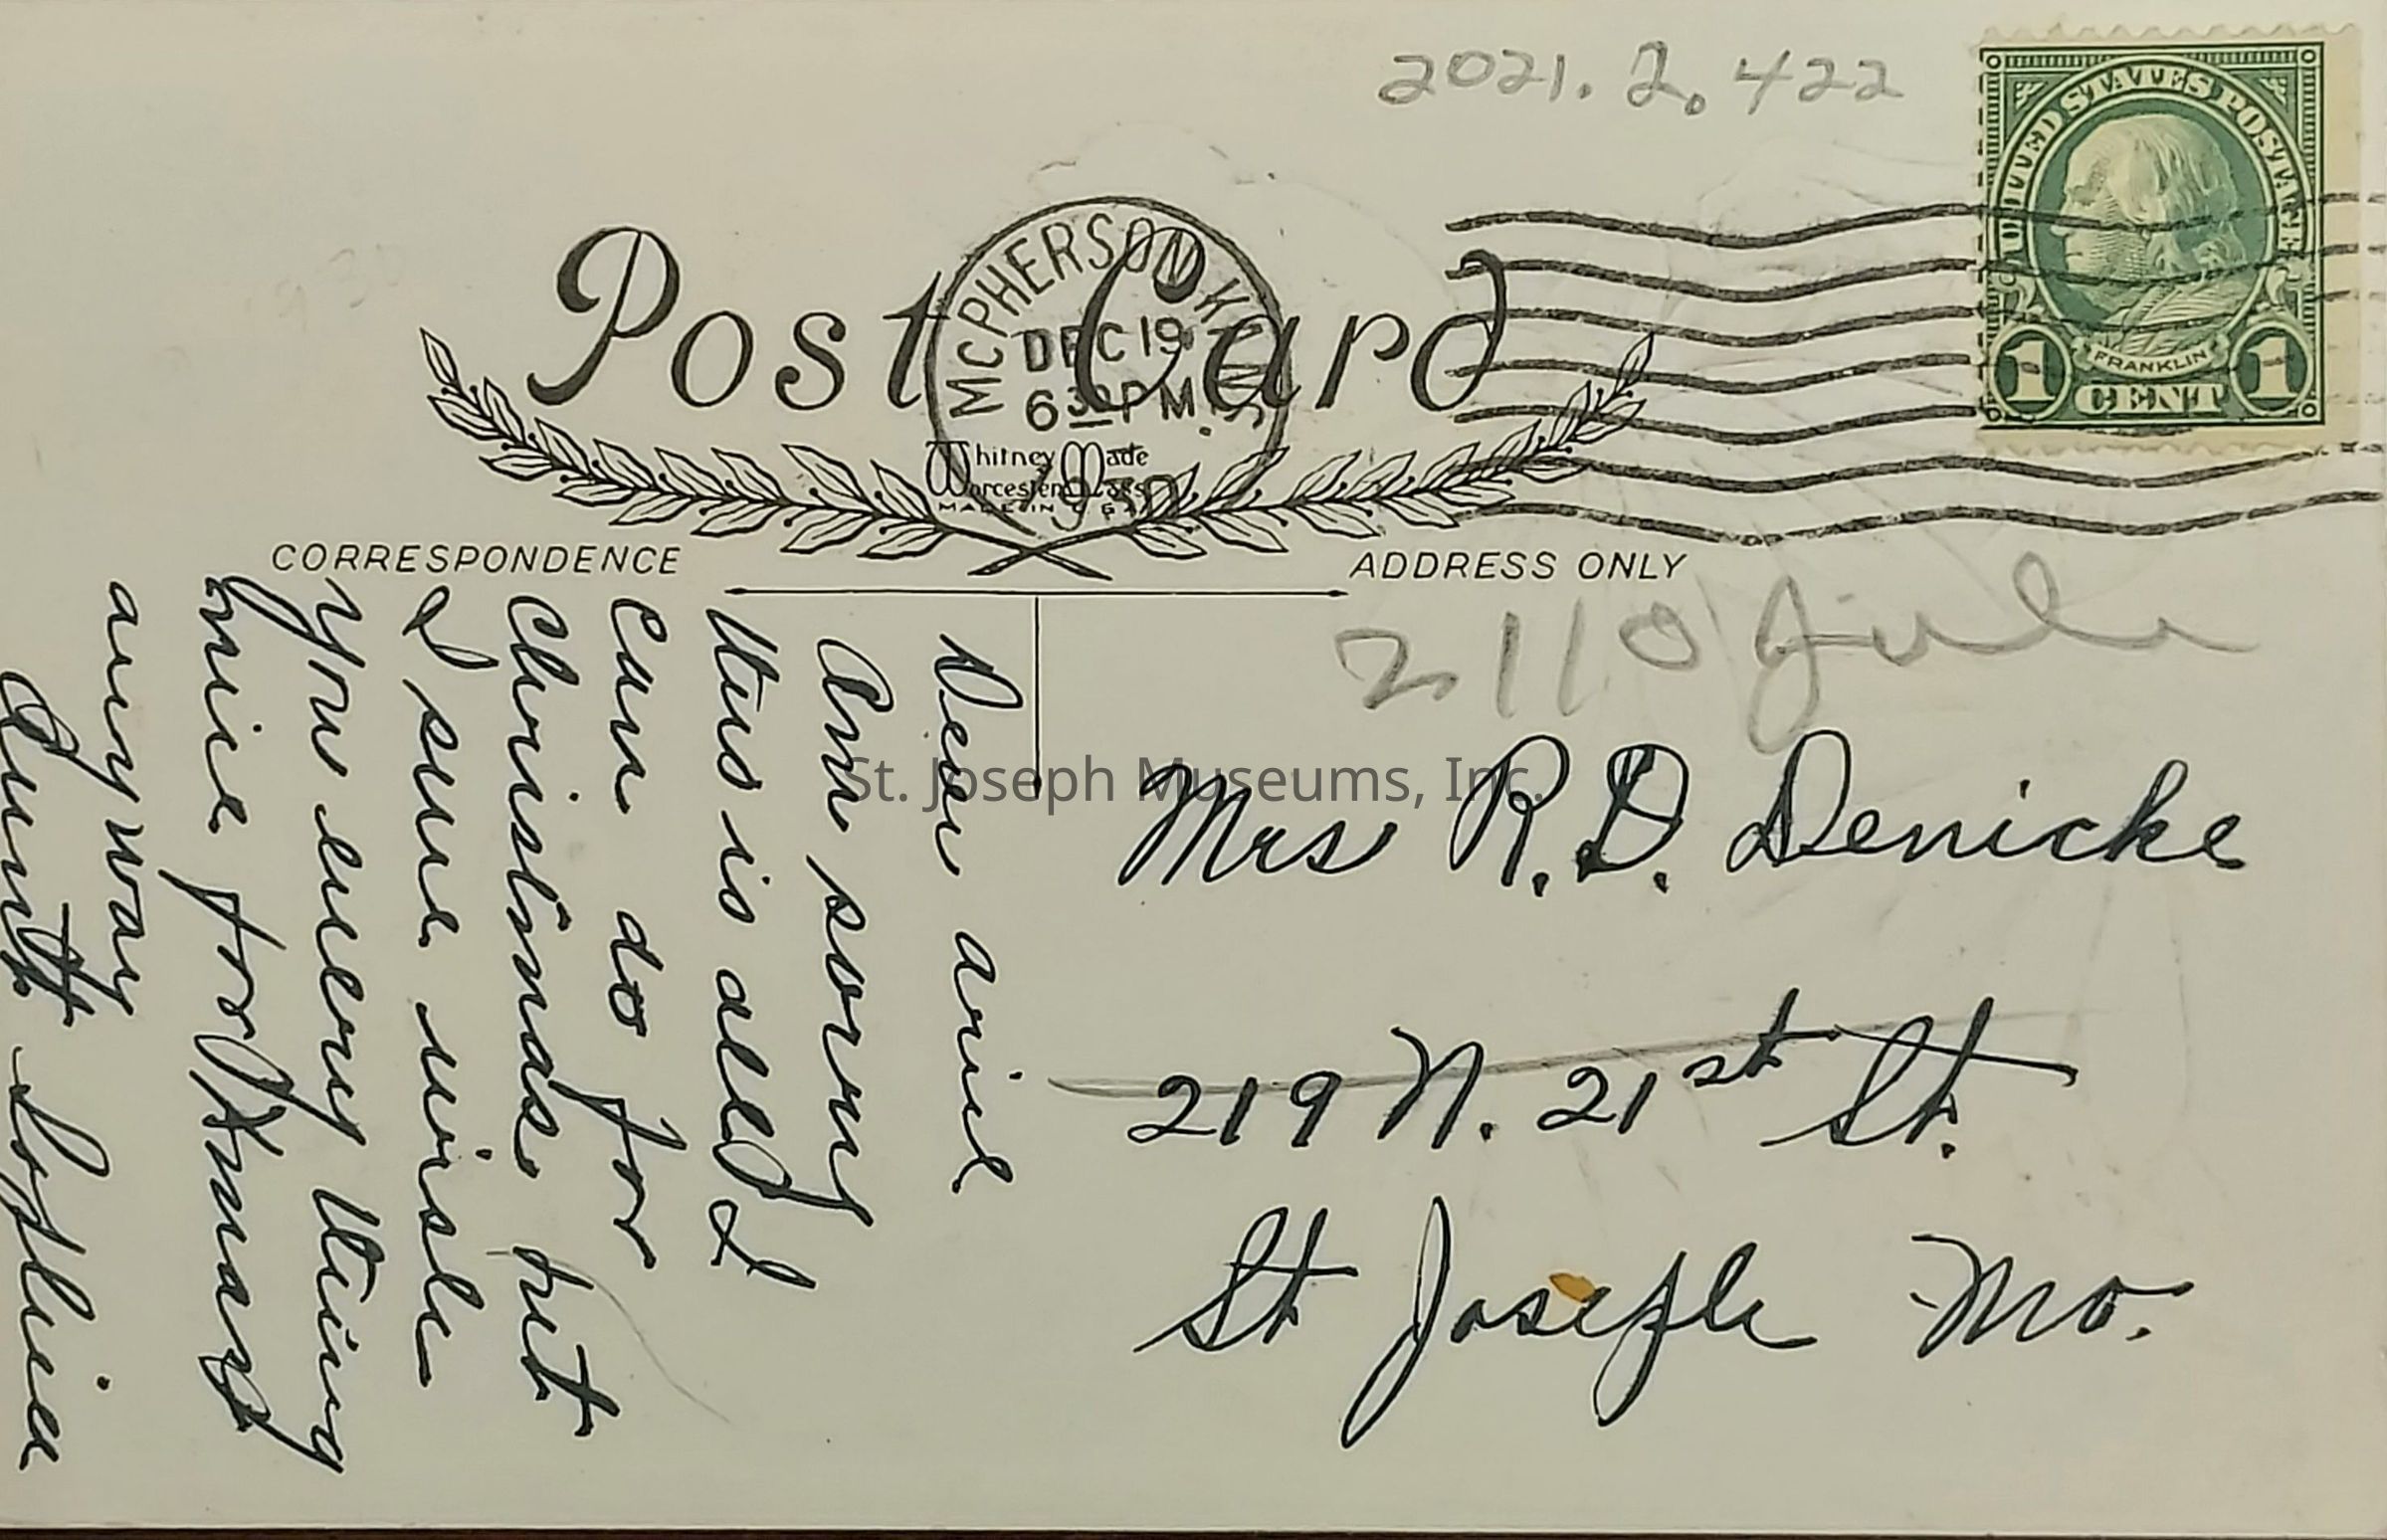 2021.2.422
UNITED STATES POSTAGE
FRANKLIN
1 CENT 1
Post Card
MCPHERSON KANS.
DEC 19
6 30 PM
1930
Whitney Made
Worcester, Mass
MADE IN U S A
CORRESPONDENCE
ADDRESS ONLY
Dear
Am sorry
this is all I
can do for
Christmas but
I sure wish
you every thing
nice for Xmas
any way
Aunt Sophia
2110
Mrs R.D. Denicke
219 N. 21st St.
St Joseph Mo.
St. Joseph Museums, Inc.